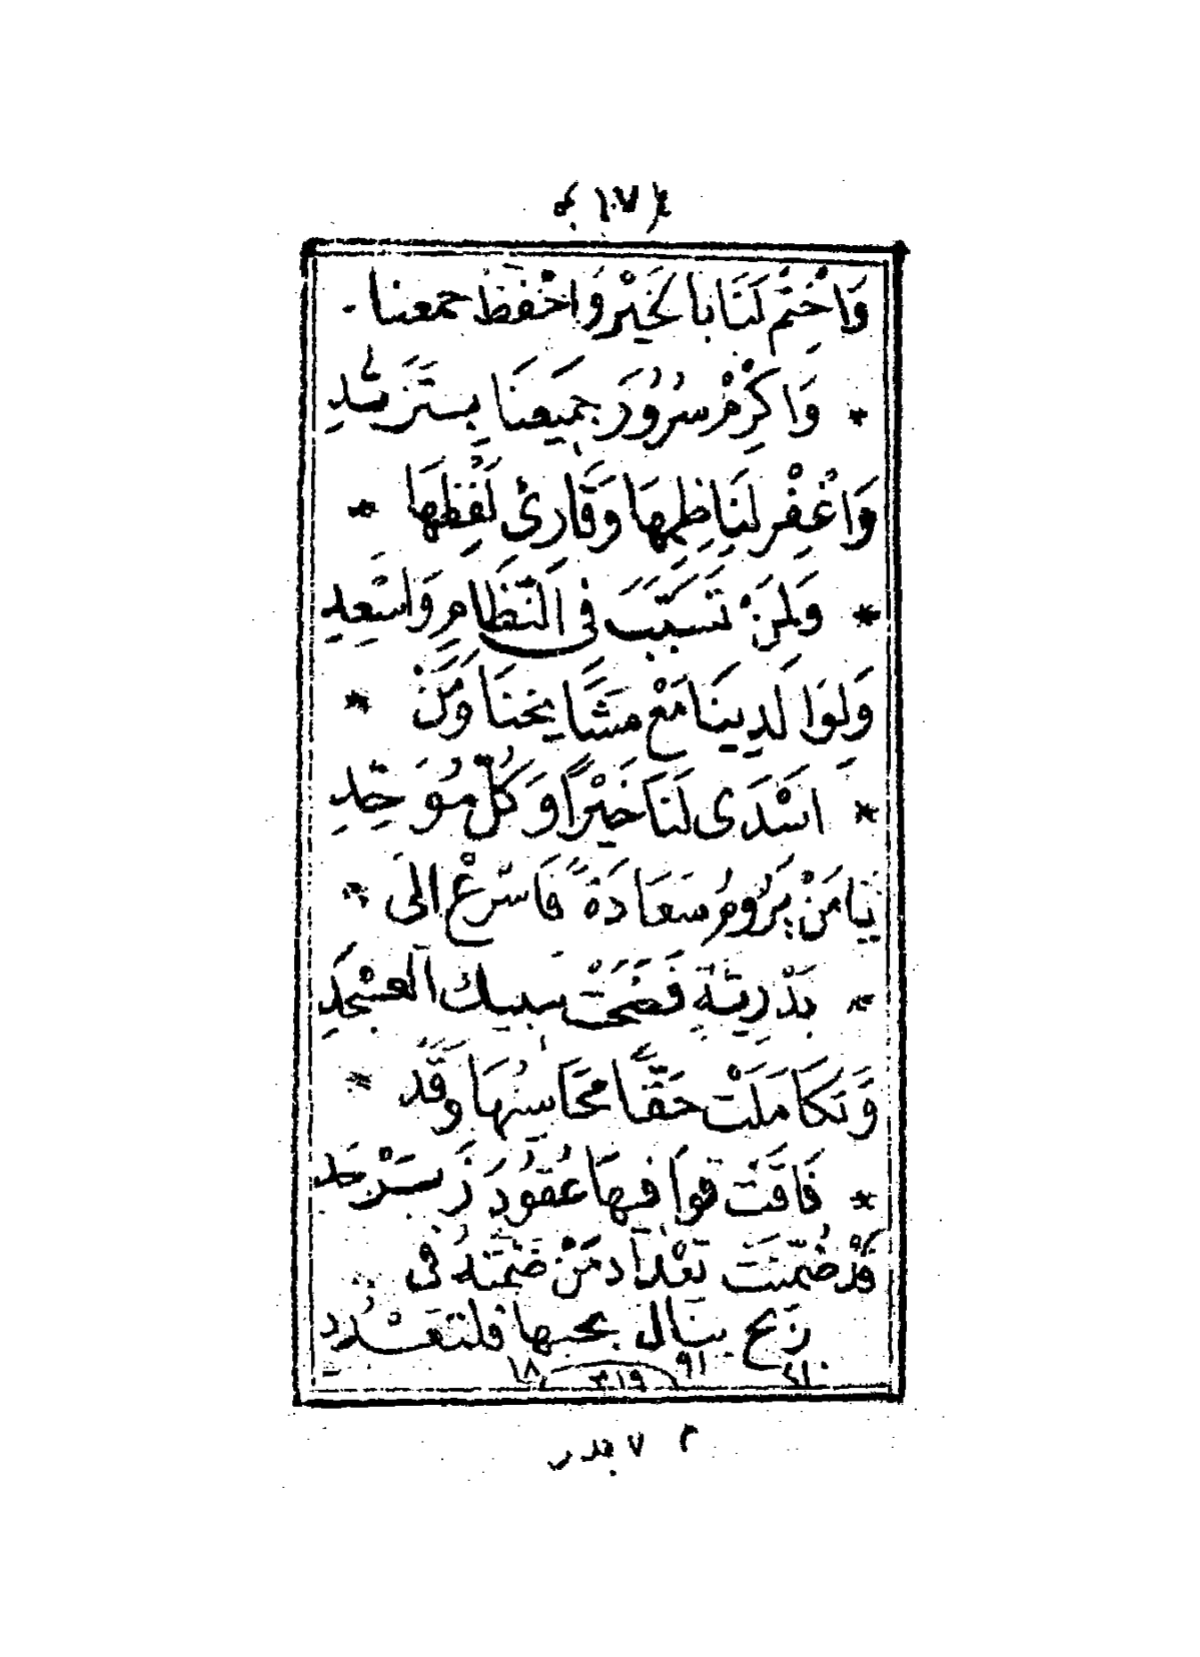 ﴿ ١٠٧ ﴾
وَاخْتِمْ لَنَا بِالْخَيْرِ وَاحْفَظْ جمعنا
* وَاكْرِمْ سُرُوْرَ جَمِيْعِنَا بِتَزَيُّدِ
وَاغْفِرْ لِنَاظِمِهَا وَقَارِئِ لَفْظِهَا *
* وَلِمَنْ تَسَبَّبَ فِى النِّظَامِ وَاسْعِدِ
وَلِوَالِدِيْنَا مَعْ مَشَايِخِنَا وَمَنْ *
* اَسْدَى لَنَا خَيْرًا وَكُلِّ مُوَحِّدِ
يَا مَنْ يَرُوْمُ سَعَادَةً فَاسْرِعْ اِلَى *
* بَدْرِيَّةٍ فَضَحَتْ سَبِيْكَ الْعَسْجَدِ
وَتَكَامَلَتْ حَقًّا مَحَاسِنُهَا وَقَدْ *
* فَاقَتْ قَوَافِهَا عُقُوْدَ زَبَرْجَدِ
قَدْ ضُمِّنَتْ تَعْدَادَ مَنْ ضَمَّتْهُ فِى
رَبِحٌ يَنَالُ بحبها فلتعْدُدِ
١٨ ٣١٩ ٩١
م ٧ بدر